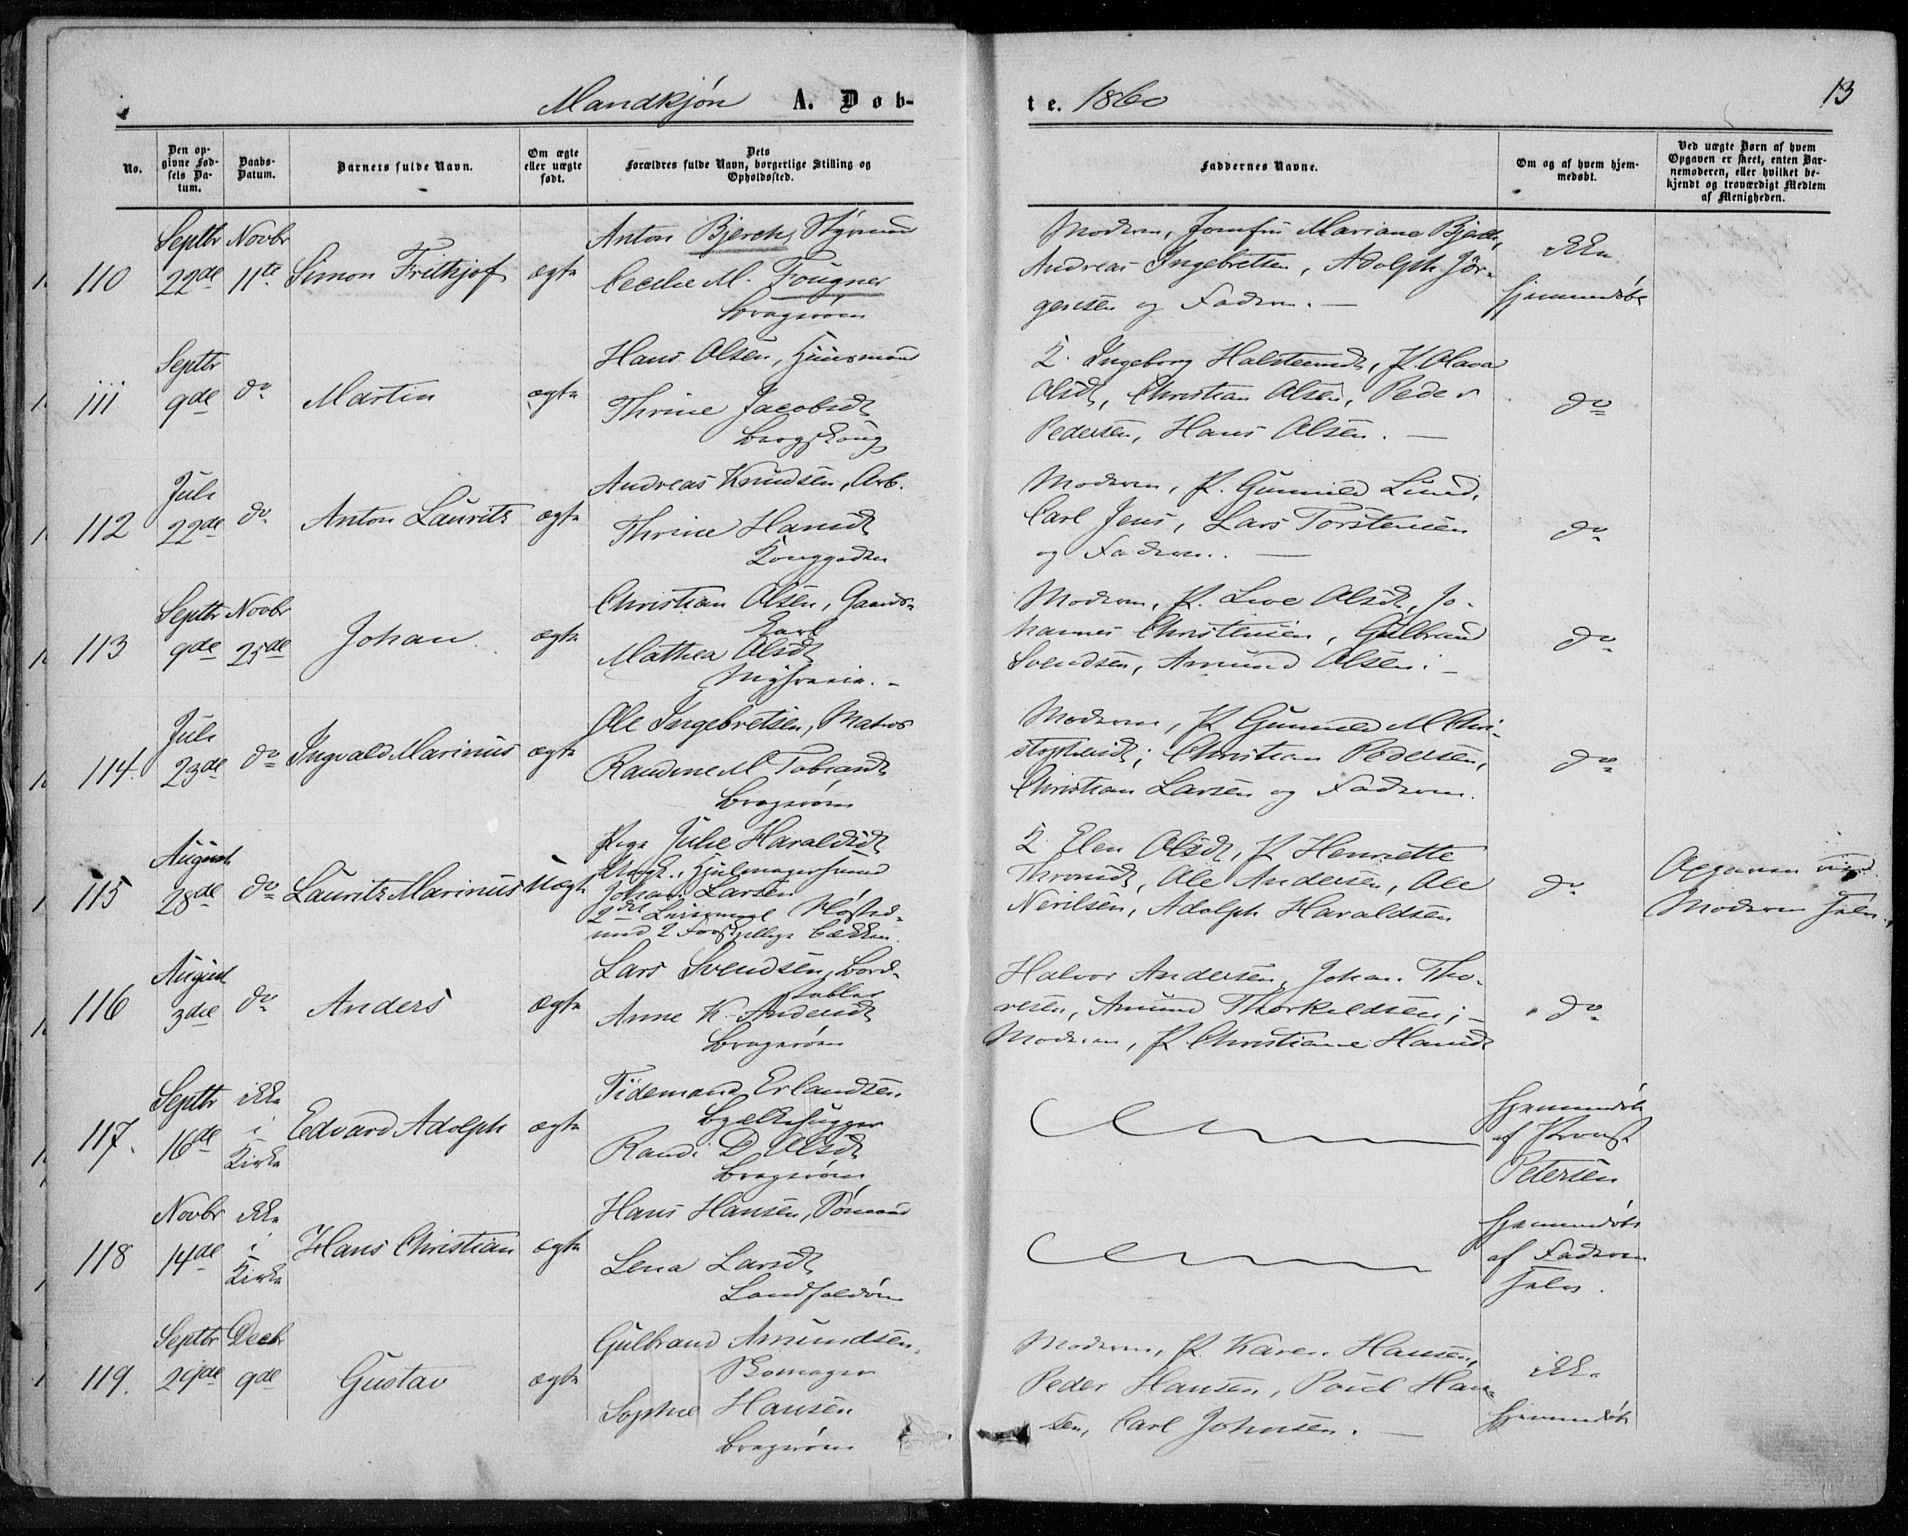 Mandkjøn A. Døb-
te. 1860
13
No.
Den op-
givne Fød-
sels Da-
tum.
Daabs-
Datum.
Barnets fulde Navn.
Om ægte
eller uægte
født.
Dets
Forældres fulde Navn, borgerlige Stilling og
Opholdssted.
Faddernes Navne.
Om og af hvem hjem-
medøbt.
Ved uægte Børn af hvem
Opgaven er skeet, enten Bar-
nemoderen, eller hvilket be-
kjendt og troværdigt Medlem
af Menigheden.
110
Septbr
22de
Novbr
11te
Simon Frithjof
ægte
Anton Bjerck, Styrmand
Cecilie M. Fougner
Bragerøen
Moderen, Jomfru Mariane Bjerck,
Andreas Ingebretsen, Adolph Jør-
gensen og Faderen. —
ikke
hjemmedøbt
111
Septbr
9de
do
Martin
ægte
Hans Olsen, Huusmand
Thrine Jacobsdt
Bragskoug
K. Ingeborg Halsteensdt, P. Olava
Olsdt, Christian Olsen, Peder
Pedersen, Hans Olsen. —
do
112
Juli
22de
do
Anton Lauritz
ægte
Andreas Knudsen, Arb.
Thrine Hansdt
Konggaden
Moderen, P. Gunnild Lund,
Carl Jens, Lars Torstensen
og Faderen. —
do
113
Septbr
9de
Novbr
25de
Johan
ægte
Christian Olsen, Gaards-
Karl
Mathea Olsdt
Moderen, P. Live Olsdt, Jo-
hannes Christensen, Gulbrand
Svendsen, Amund Olsen. —
do
114.
Juli
23de
do
Ingvald Marinus
ægte
Ole Ingebretsen, Matros
Randine M. Tobiasdt
Bragerøen
Moderen, P. Gunnild M. Chri-
stophersdt; Christian Pedersen,
Christian Larsen og Faderen.
do
115
August
28de
do
Lauritz Marinus
Uægte
Pige Julie Haraldsdt
Ungk. Hjulmagersvend
Johan Larsen
2det Leiermaal
med 2 Forskjellige
K. Elen Olsdt, P. Henriette
Thronsdt, Ole Andersen, Ole
Nerilsen, Adolph Haraldsen
do
Opgaven ved
Moderen selv.
116
August
3die
do
Anders
ægte
Lars Svendsen, Bord-
stabler
Anne K. Andersdt
Bragerøen
Halvor Andersen, Johan Tho-
resen, Amund Thorkildsen; —
Moderen, P. Christiane Hansdt
do
117.
Septbr
16de
ikke
i
Kirke
Edvard Adolph
ægte
Tidemand Erlandsen,
Bjelkehugger
Randi D. Olsdt
Bragerøen
hjemmedøbt
af Provst
Petersen
118
Novbr
14de
ikke
i
Kirke
Hans Christian
ægte
Hans Hansen, Sømand
Lena Larsdt
Landfaldøen
hjemmedøbt
af Faderen
selv.
119.
Septbr
29de
Decbr
9de
Gustav
ægte
Gulbrand Amundsen,
Skomager
Sophie Hansen
Bragerøen
Moderen, P. Karen Hansen,
Peder Hansen, Poul Han-
sen, Carl Johnsen. —
ikke
hjemmedøbt